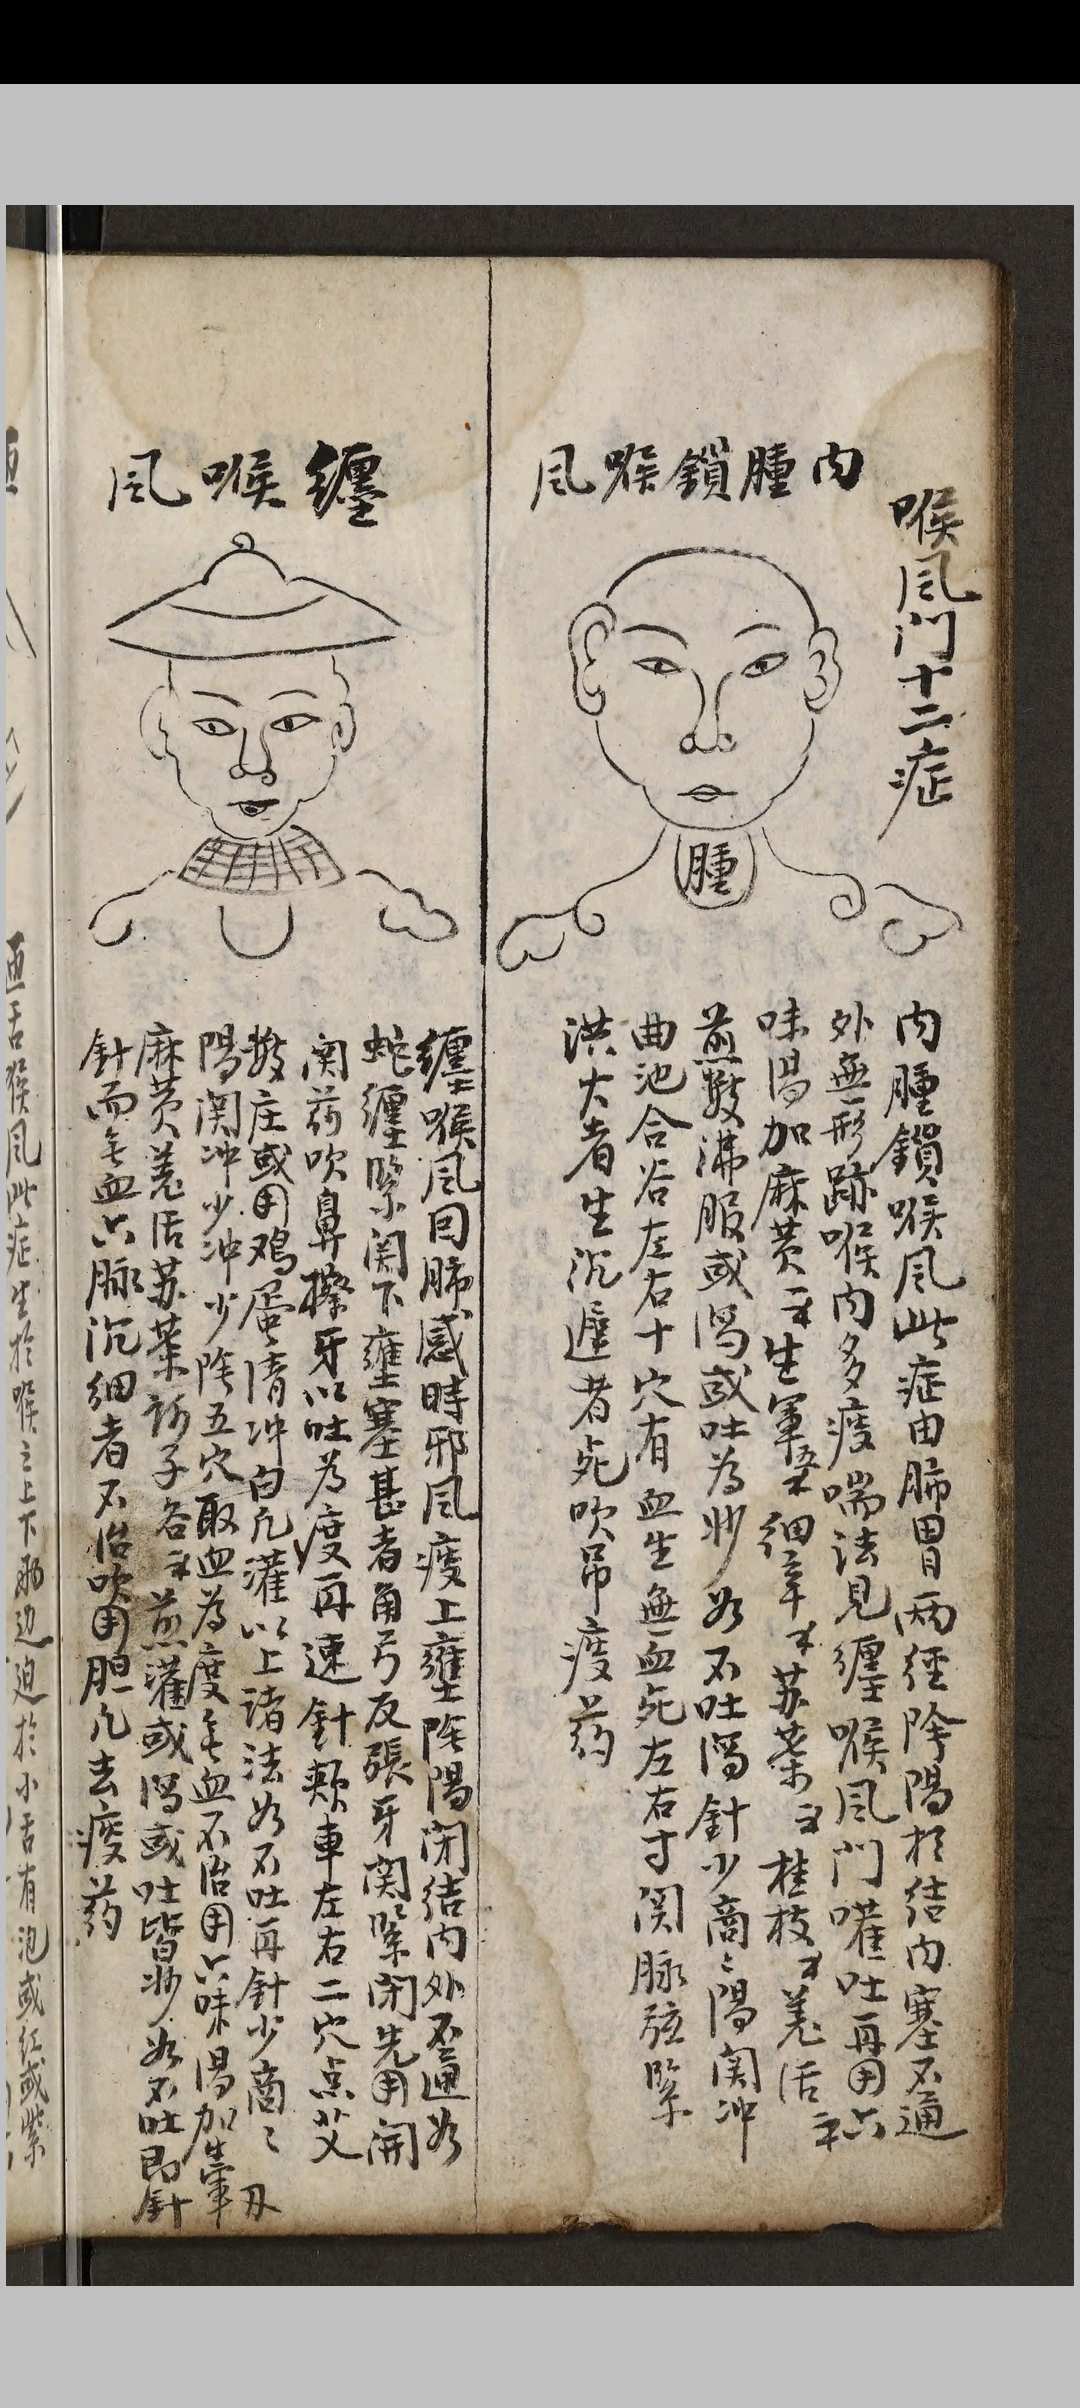 喉風門十二症
内腫鎖喉風
腫
内腫鎖喉風此症由肺胃兩經陰陽於结内塞不通
外無形跡喉内多痰喘法見纏喉風門嚾吐再用六
味湯加麻黄生軍细辛苏葉桂枝羌活
煎數沸服或瀉或吐為妙如不吐瀉針少商〻陽関冲
曲池合谷左右十穴有血生無血死左右寸関脉弦緊
洪大者生沉遲者死吹吊痰药
纏喉風
纏喉風因肺感時邪風痰上壅陰陽闭结内外不通如
蛇纏緊関下壅塞甚者角弓反張牙関緊闭先用開
関药吹鼻擦牙以吐為度再速針頬車左右二穴点艾
數庄或用鸡蛋清冲白凡灌以上诸法如不吐再針少商〻
陽関冲少冲少陰五穴取血為度无血不治用六味湯加生軍
麻黄羌活苏葉訶子各煎灌或瀉或吐皆妙如不吐即針
針而无血六脉沉细者不治吹用胆凡去痰药
舌喉風此症生於喉之上下兩边迫於小舌有泡或红或紫